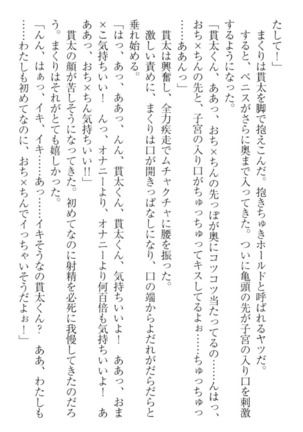 たして！」
　まくりは貫太を脚で抱えこんだ。抱きちゅきホールドと呼ばれるヤツだ。
　すると、ペニスがさらに奥まで入ってきた。ついに亀頭の先が子宮の入り口を刺激
するようになった。
「貫太くん、ああっ、おち×ちんの先っぽが奥にコツコツ当たってるの……んはっ、
おち×ちんの先と、子宮の入り口がちゅっちゅってキスしてるよぉ……ちゅっちゅっ
……ああんっ」
　貫太は興奮し、全力疾走でムチャクチャに腰を振った。
　激しい責めに、まくりは口が開きっぱなしになり、口の端からよだれがだらだらと
垂れ始める。
「はっ、あっ、ああっ、んん、貫太くん、気持ちいいよ！　ああっ、あっ、おま
×こ気持ちいい！　んっ、オナニーより、オナニーより何百倍も気持ちいいよ！　あ
ああっ、おち×ちん気持ちいい！！」
　貫太の顔が苦しそうになってきた。初めてなのに射精を必死に我慢してきたのだろ
う。まくりはそれがとても嬉しかった。
「んん、はぁっ、イキ、イキ……あっ……イキそうなの貫太くん？　ああ、わたしも
……わたしも初めてなのに、おち×ちんでイっちゃいそうだよぉ！」